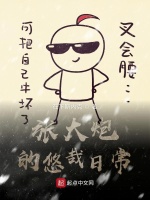 叉会腰..
可把自己牛坏了
大炮
的悠哉日常
起点中文网